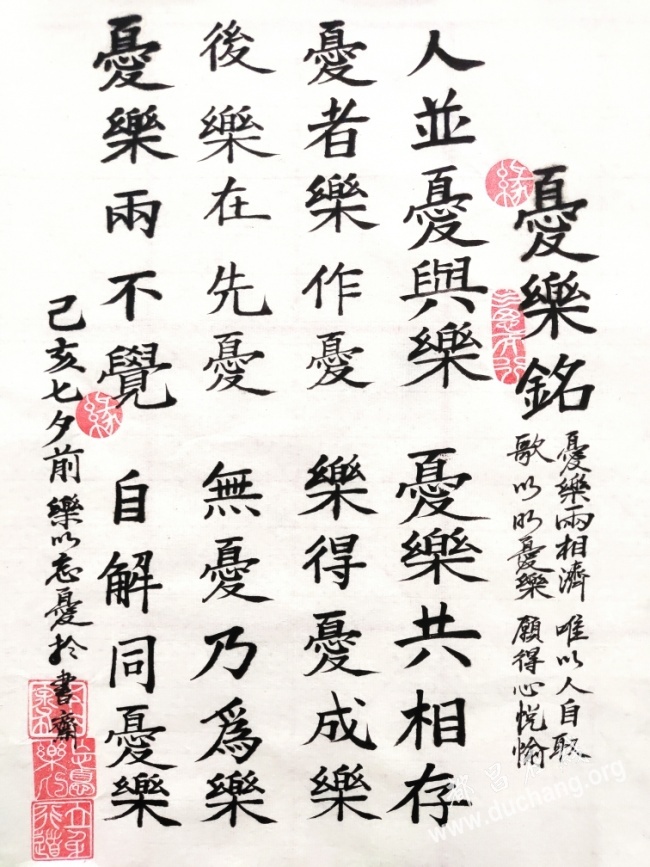 憂樂銘
憂樂兩相濟 唯以人自取
歌以明憂樂 願得心悅愉
人並憂與樂 憂樂共相存
憂者樂作憂 樂得憂成樂
後樂在先憂 無憂乃為樂
憂樂兩不覺 自解同憂樂
己亥七夕前樂以忘憂於書齋
緣
緣
www.duchang.org